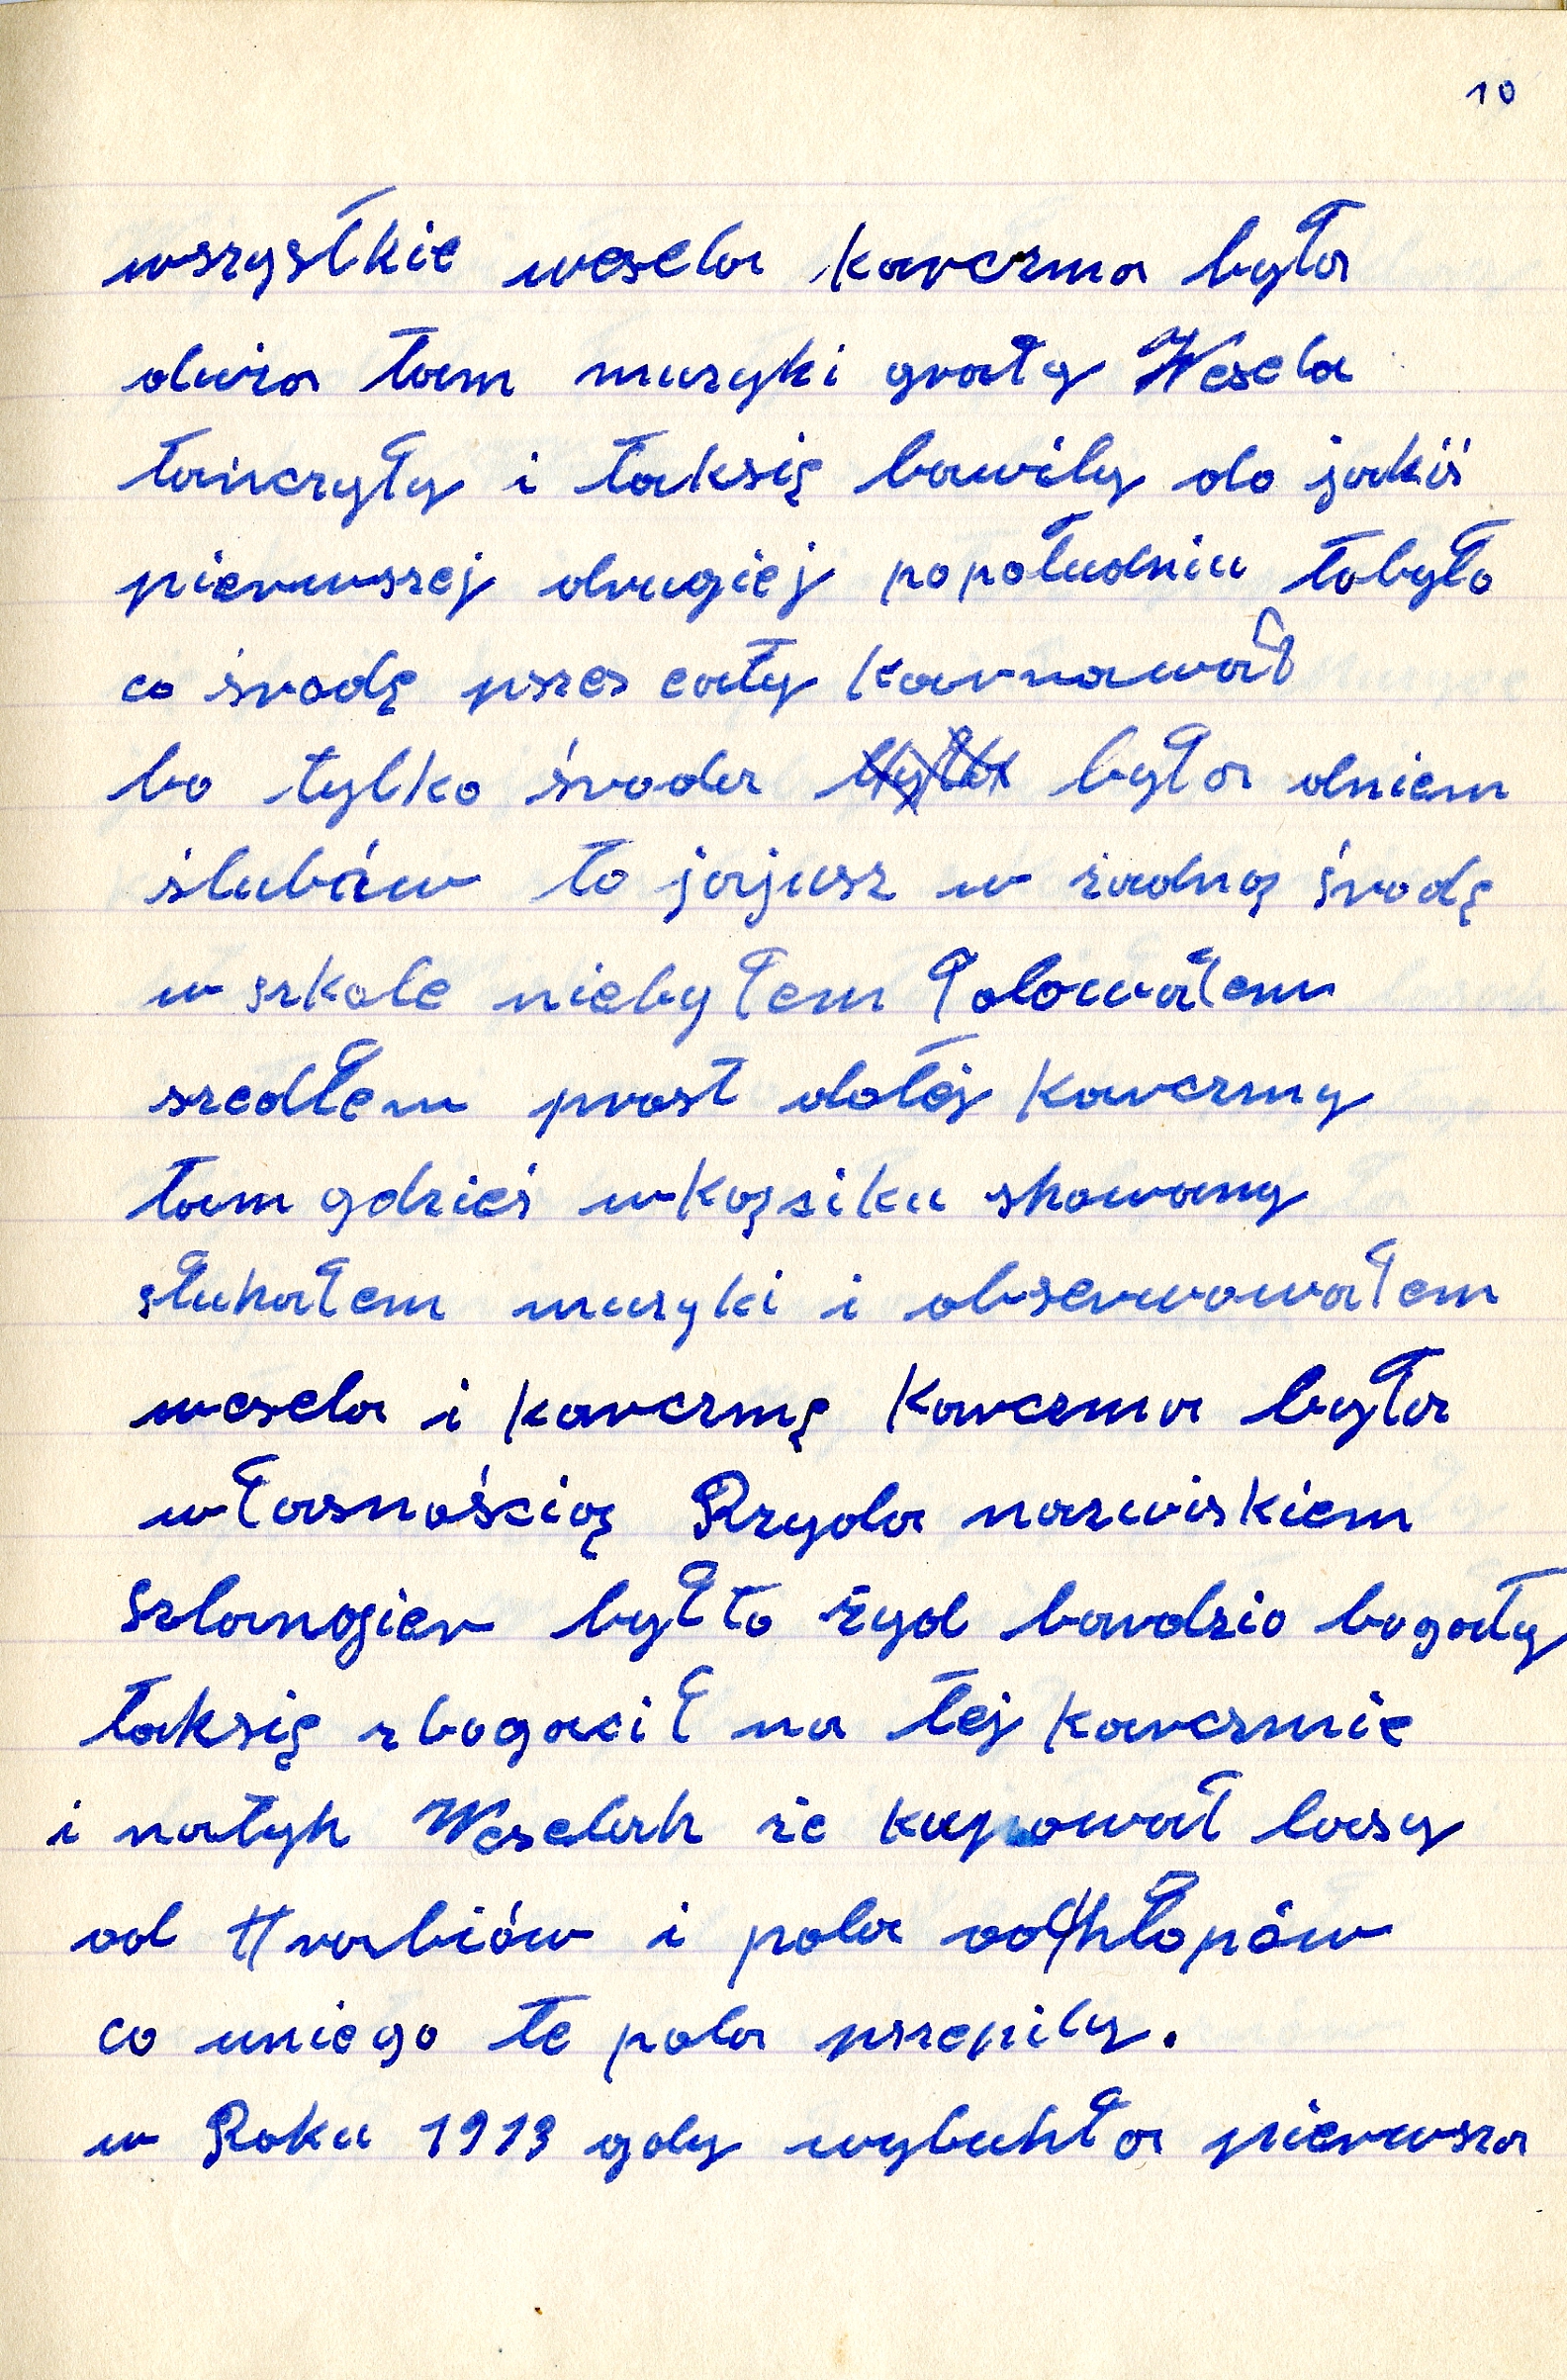 10
wszystkie wesela karczma była
duża tam muzyki grały Wesela
tańczyły i taksię bawiły do jakiś
pierwszej drugiej popołudniu tobyło
co środę pszes cały karnawał
bo tylko środa była była dniem
ślubów to jajusz w żadną środę
w szkole niebyłem Tolowałem
szedłem prost dotej karczmy
tam gdzieś wkąsiku showany
słuhałem muzyki i obserwowałem
wesela i karczmę karczma była
własnością Rzyda nazwiskiem
Szlangier był to żyd bardzio bogaty
taksię zbogacił na tej karczmie
i natyh Weselah że kupował lasy
od Hrabiów i pola od hłopów
co uniego te pola pszepiły.
w Roku 1913 gdy wybuhła pierwsza